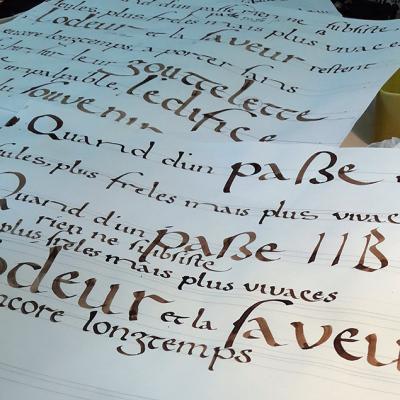 rien ne subsiste
seules, plus frêles mais plus vivaces
l'odeur et la saveur restent
encore longtemps, a porter sans
gouttelette
impalpable, l'edifice
du souvenir
Quand d'un paße
seules, plus freles mais plus vivac
Quand d'un paße 11B
rien ne subsiste
plus, frêles mais plus vivaces
odeur et la saveu
encore longtemps